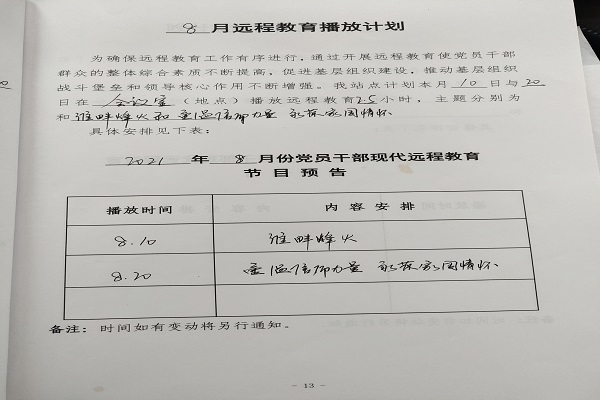 8 月远程教育播放计划
为确保远程教育工作有序进行,通过开展远程教育使党员干部
群众的整体综合素质不断提高,促进基层组织建设,推动基层组织
战斗堡垒和领导核心作用不断增强。我站点计划本月 10 日与 20
日在 会议室 (地点)播放远程教育2.5小时,主题分别为
和淮畔烽火和重温信仰力量 永葆家国情怀
具体安排见下表:
2021 年 8 月份党员干部现代远程教育
节目预告
播放时间 内容安排
8.10 淮畔烽火
8.20 重温信仰力量 永葆家国情怀
备注:时间如有变动将另行通知。
- 13 -